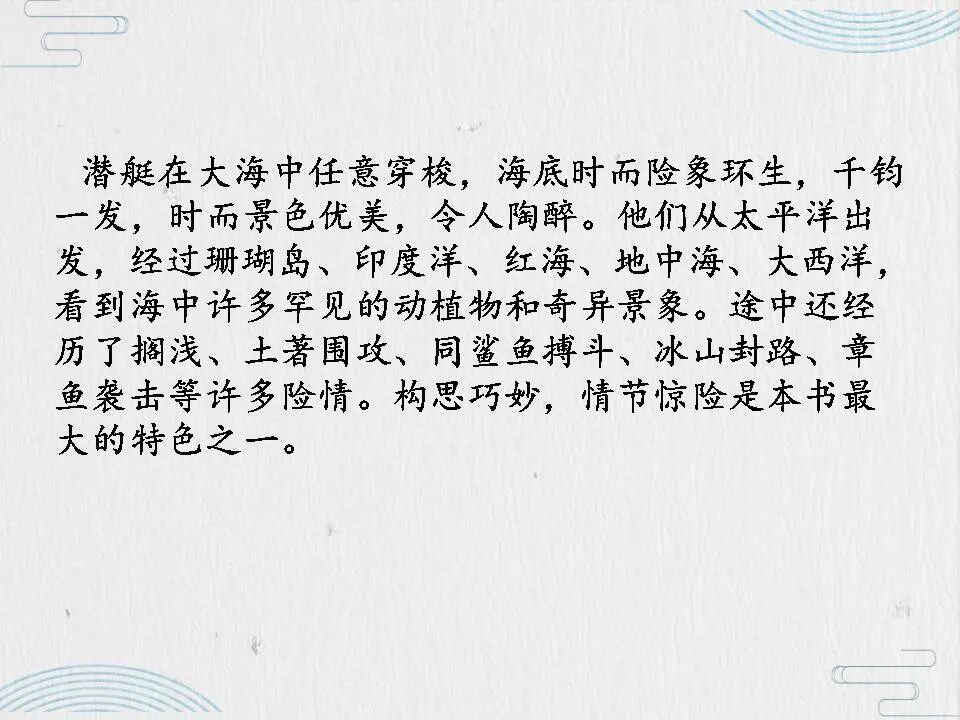 潜艇在大海中任意穿梭，海底时而险象环生，千钧
一发，时而景色优美，令人陶醉。他们从太平洋出
发，经过珊瑚岛、印度洋、红海、地中海、大西洋，
看到海中许多罕见的动植物和奇异景象。途中还经
历了搁浅、土著围攻、同鲨鱼搏斗、冰山封路、章
鱼袭击等许多险情。构思巧妙，情节惊险是本书最
大的特色之一。